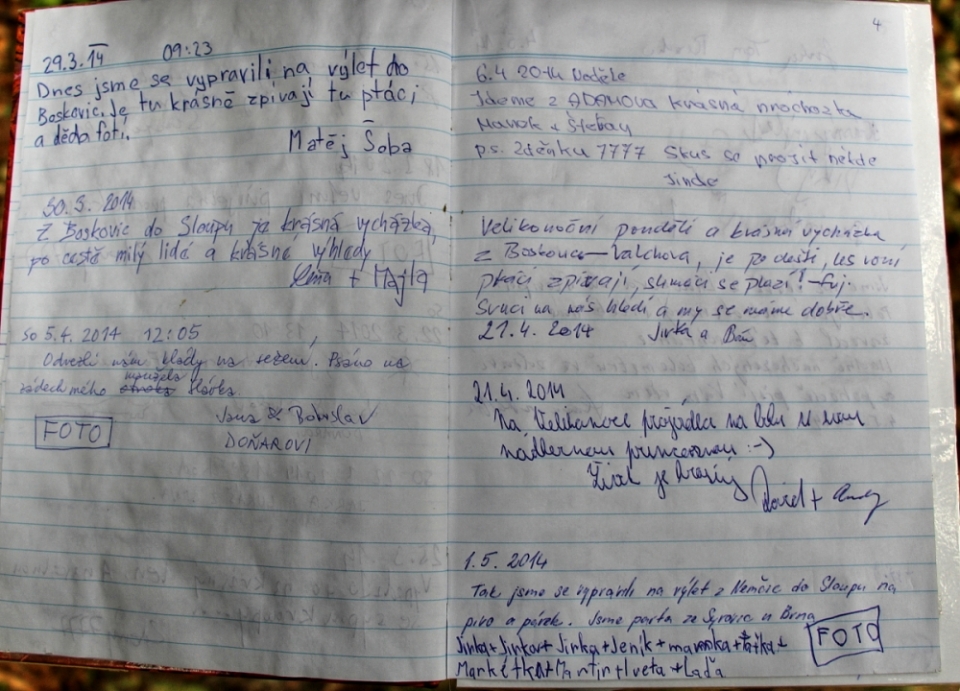 29.3.14 09:23
Dnes jsme se vypravili na výlet do
Boskovic. Je tu krásně zpívají tu ptáci
a děda fotí.
Matěj Šoba
30.3. 2014
Z Boskovic do Sloupu je krásná vycházka,
po cestě milý lidé a krásné výhledy
+ Majla
So 5.4. 2014 12:05
Odvezli nám klády na sezení. Psáno na
zádech mého manžela Slávka.
FOTO
Jana & Bohuslav
DOŇAROVI
4
6.4 2014 Neděle
Jdeme z ADAMOVA krásná procházka
p.s. Zdeňku 7777 Skus se
Jinde
Velikonoční pondělí a krásná vycházka
z Boskovic - Valchova, je po dešti, les voní
ptáci zpívají, slimáci se plazí! - fuj.
Svuci na nás hledí a my se máme dobře.
21.4. 2014 Jirka a
21.4. 2014
Na Velikonoce projížďka na kolu s mou
nádhernou princeznou :-)
Život je krásný David +
1.5. 2014
Tak jsme se vypravili na výlet z Němčic do Sloupu na
pivo a párek. Jsme parta ze Syrovic u Brna
FOTO
Jirka + + Jirka + Jeník + mamka + taťka +
+ Martin + Iveta + Laďa